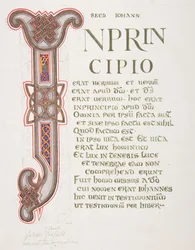 SECD IOHANN
INPRIN
CIPIO
ERAT VERBUM ET VERBUM
ERAT APUD DM ET DS
ERAT VERBUM HOC ERAT
IN PRINCIPIO APUD DM
OMNIA PER IPSUM FACTA SUNT
ET SINE IPSO FACTU EST NIHIL
QUOD FACTUM EST
IN IPSO VITA EST ET VITA
ERAT LUX HOMINUM
ET LUX IN TENEBRIS LUCET
ET TENEBRAE EAM NON
COMPREHENDERUNT
FUIT HOMO MISSUS A DO
CUI NOMEN ERAT IOHANNES
HIC VENIT IN TESTIMONIUM
UT TESTIMONIUM PER